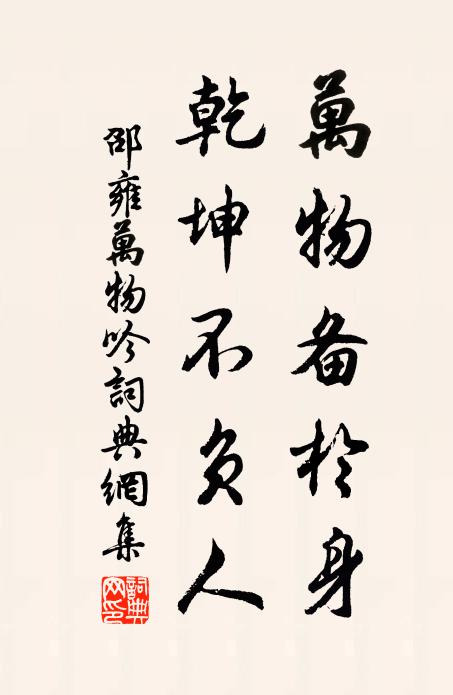 萬物备於身
乾坤不负人
邵雍萬物吟詞典網集
詞典網印